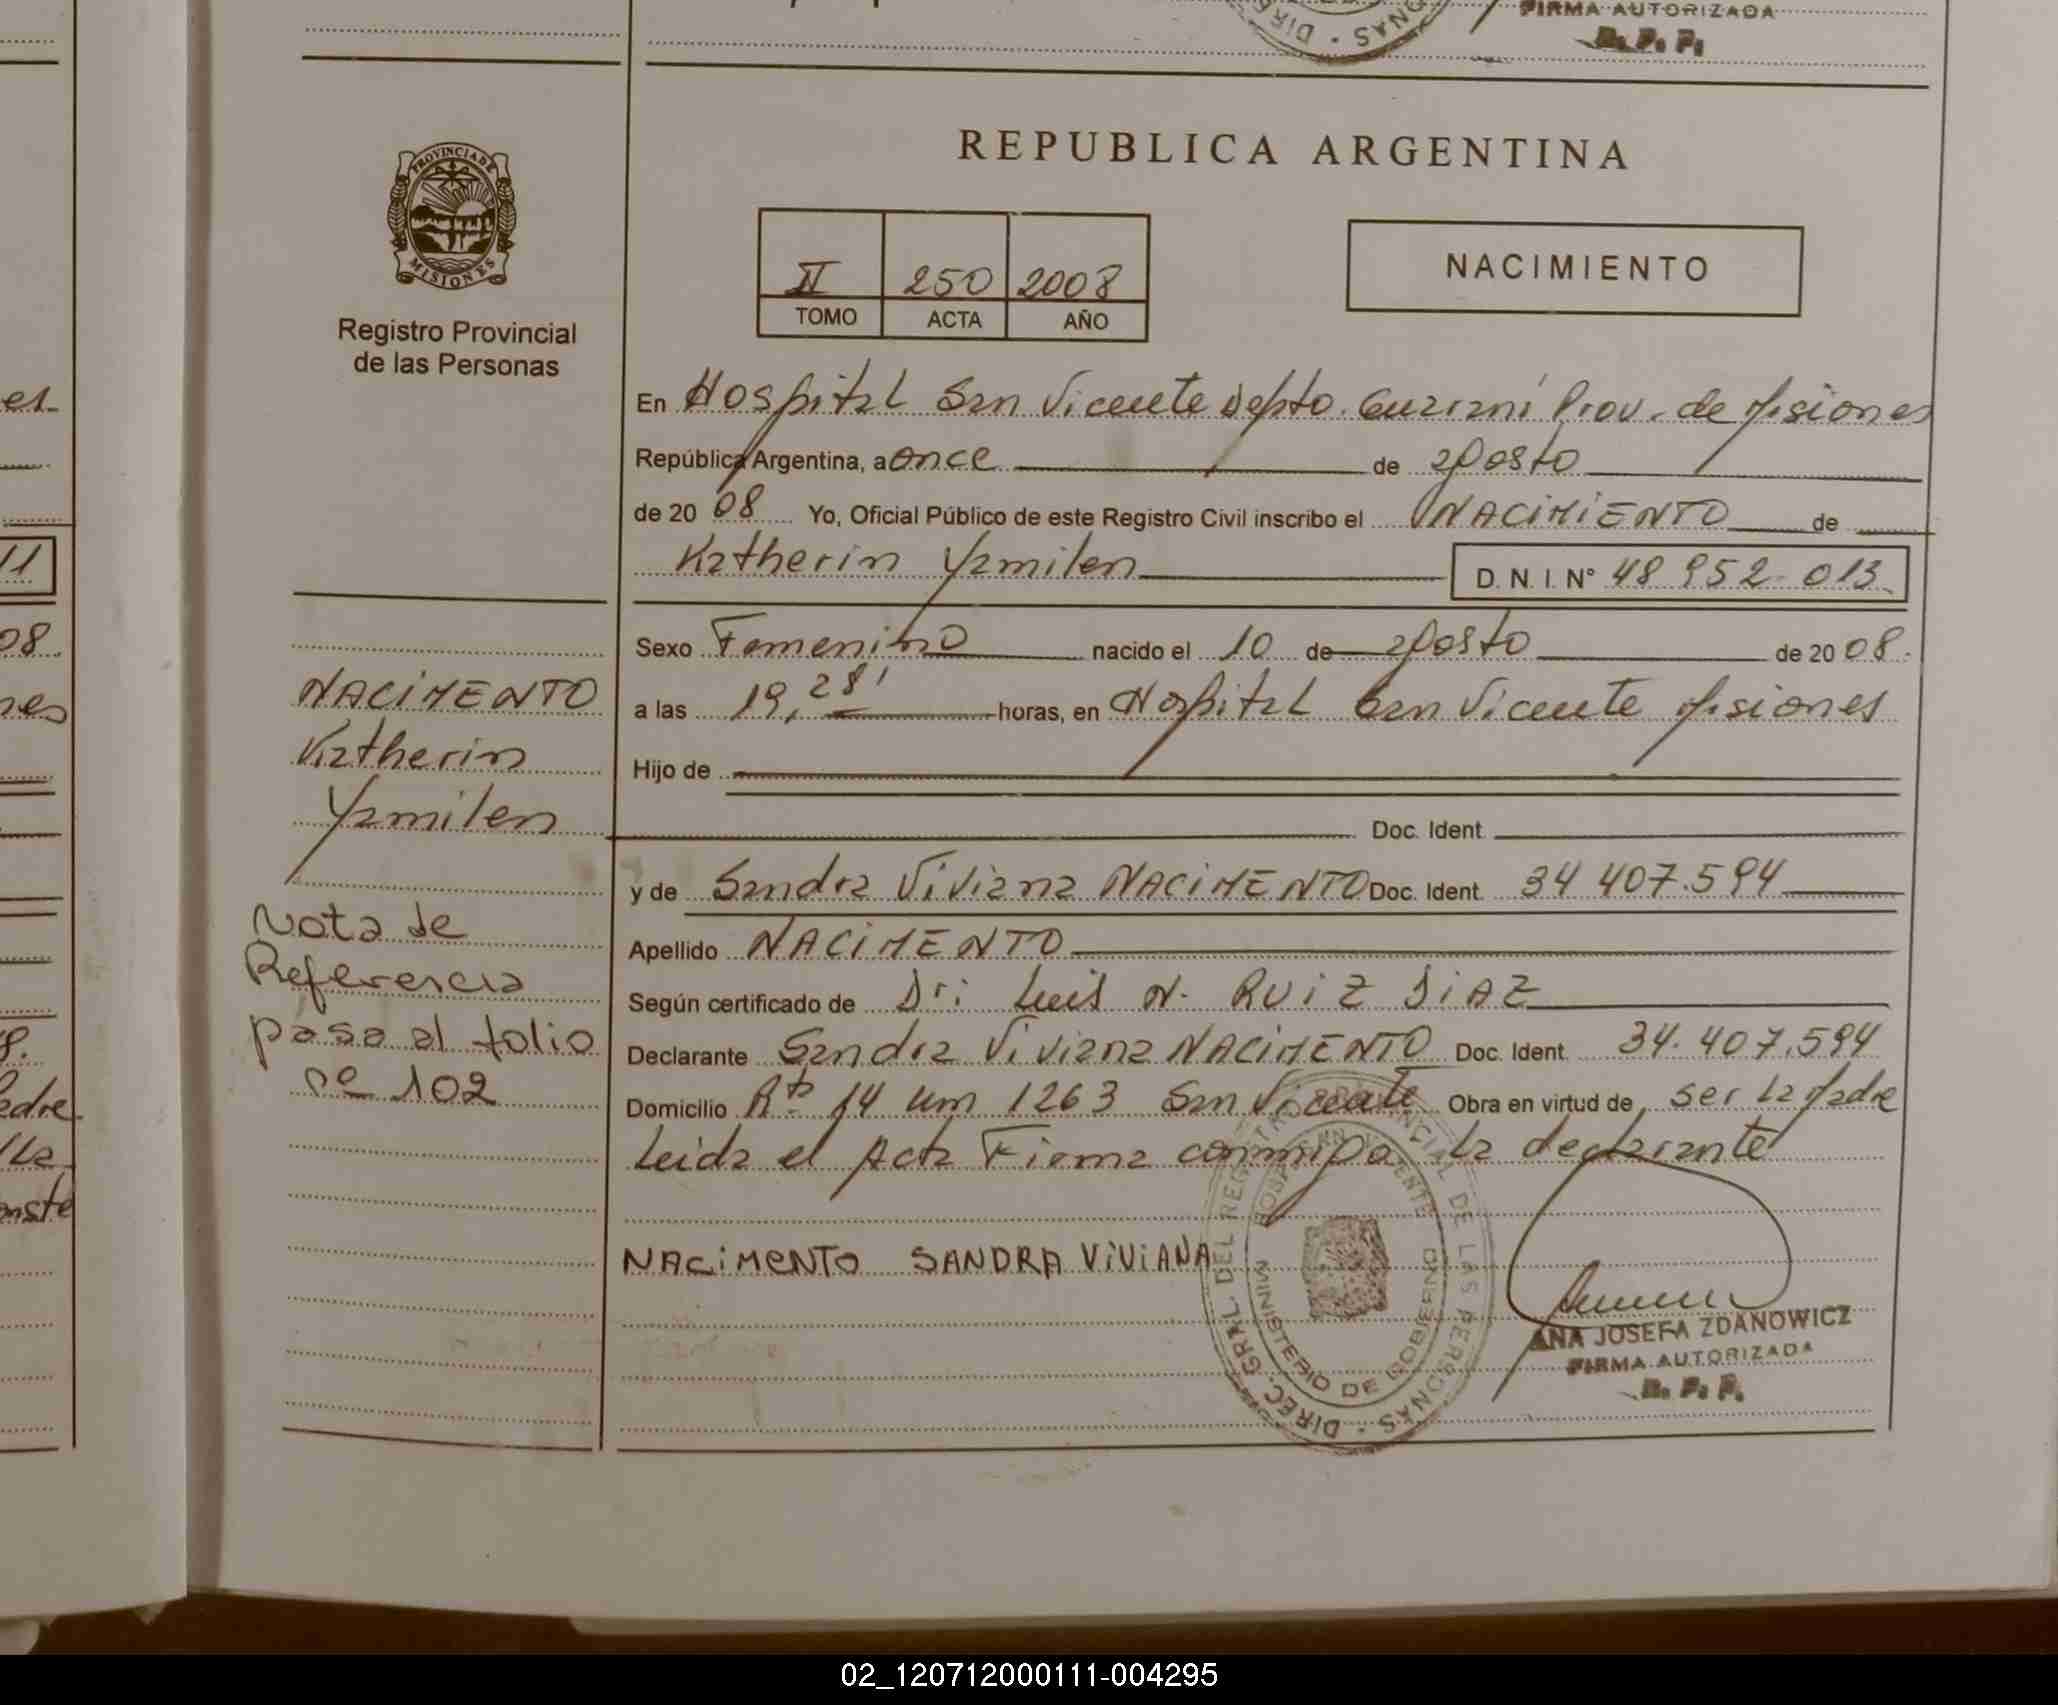 FIRMA AUTORIZADA
R. P. P.
REPUBLICA ARGENTINA
PROVINCIA DE
MISIONES
Registro Provincial
de las Personas
II 250 2008
TOMO ACTA AÑO
NACIMIENTO
En Hospital San Vicente Depto. Guarani Prov. de Misiones
República Argentina, a once de agosto
de 20 08 Yo, Oficial Público de este Registro Civil inscribo el NACIMIENTO de
Katherin Yamilen D. N. I. N° 48 952 013
Sexo Femenino nacido el 10 de agosto de 20 08.
a las 19,28' horas, en Hospital San Vicente Misiones
Hijo de
Doc. Ident.
y de Sandra Viviana NACIMENTO Doc. Ident. 34 407.594
Apellido NACIMENTO
Según certificado de Dr: Luis N. RUIZ DIAZ
Declarante Sandra Viviana NACIMENTO Doc. Ident. 34.407.594
Domicilio Rta 14 Km 1263 San Vicente Obra en virtud de ser la Madre
Leida el Acta Firma conmigo la declarante
NACIMENTO SANDRA VIVIANA
DIREC. GRAL. DEL REGISTRO PROVINCIAL DE LAS PERSONAS
HOSP. SAN VICENTE
MINISTERIO DE GOBIERNO
ANA JOSEFA ZDANOWICZ
FIRMA AUTORIZADA
R. P. P.
NACIMENTO
Katherin
Yamilen
Nota de
Referencia
pasa al folio
nº 102
11
08.
nes
8.
adre
La
02_120712000111-004295